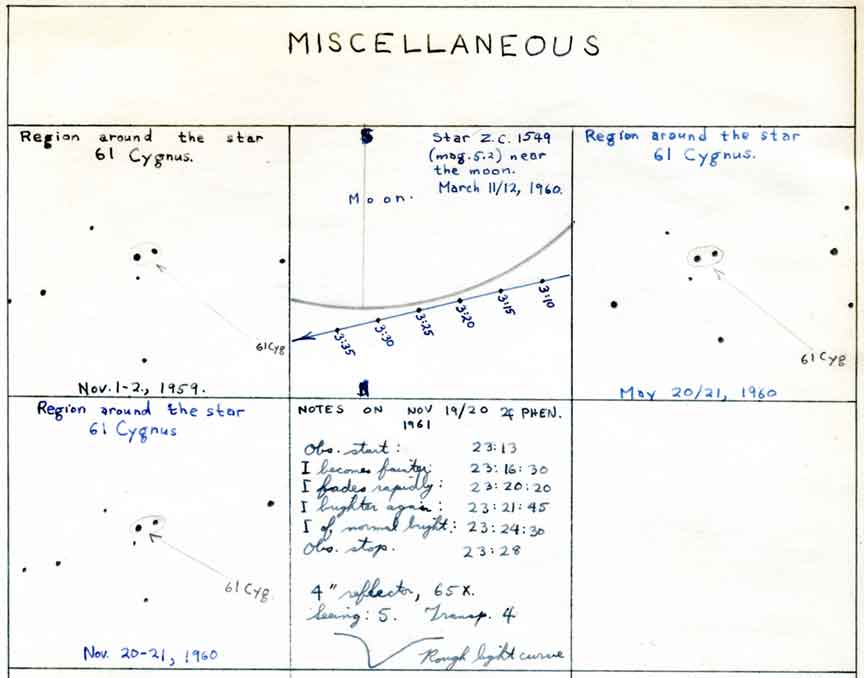 MISCELLANEOUS
Region around the star
61 Cygnus.
61 Cyg
Nov. 1-2., 1959.
S
Star Z.C. 1549
(mag. 5.2) near
the moon.
March 11/12, 1960.
Moon.
3:35
3:30
3:25
3:20
3:15
3:10
N
Region around the star
61 Cygnus.
61 Cyg
May 20/21, 1960
Region around the star
61 Cygnus
61 Cyg.
Nov. 20-21, 1960
NOTES ON NOV 19/20 ♃ PHEN.
1961
Obs. start: 23:13
I becomes fainter: 23:16:30
I fades rapidly: 23:20:20
I brighter again: 23:21:45
I of normal bright.: 23:24:30
Obs. stop. 23:28
4" reflector, 65X.
Seeing: 5. Transp. 4
Rough light curve